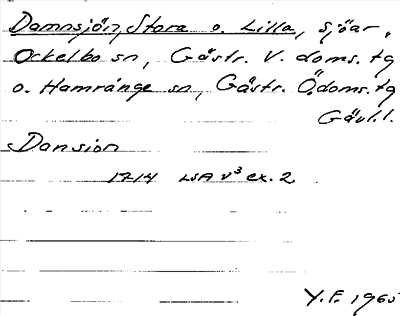 Damnsjön, Stora o. Lilla, sjöar,
Ockelbo sn, Gästr. V. doms. tg
o. Hamrånge sn, Gästr. Ö. doms. tg
Gävl.l.
Dansion
1714 LSA v³ ex. 2
Y.F. 1965